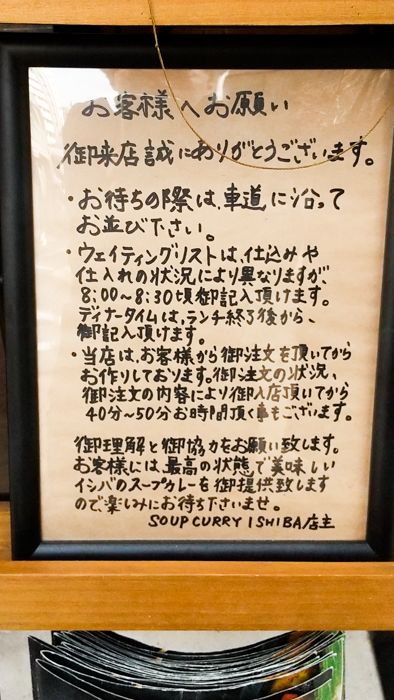 お客様へお願い
御来店誠にありがとうございます。
・お待ちの際は、車道に沿って
お並び下さい。
・ウェイティングリストは、仕込みや
仕入れの状況により異なりますが、
8:00〜8:30頃御記入頂けます。
ディナータイムは、ランチ終了後から、
御記入頂けます。
・当店は、お客様から御注文を頂いてから
お作りしております。御注文の状況、
御注文の内容により御入店頂いてから
40分〜50分お時間頂く事もございます。
御理解と御協力をお願い致します。
お客様には、最高の状態で美味しい
イシバのスープカレーを御提供致します
ので楽しみにお待ち下さいませ。
SOUP CURRY ISHIBA店主